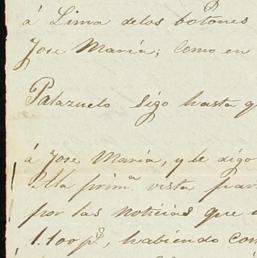 á Lima delos botones
Jose María; como en
Palazuelo Sigo hasta q
á Jose María, y le digo
prim.ª vista, par
por las noticias que
1.100 p.s, habiendo con